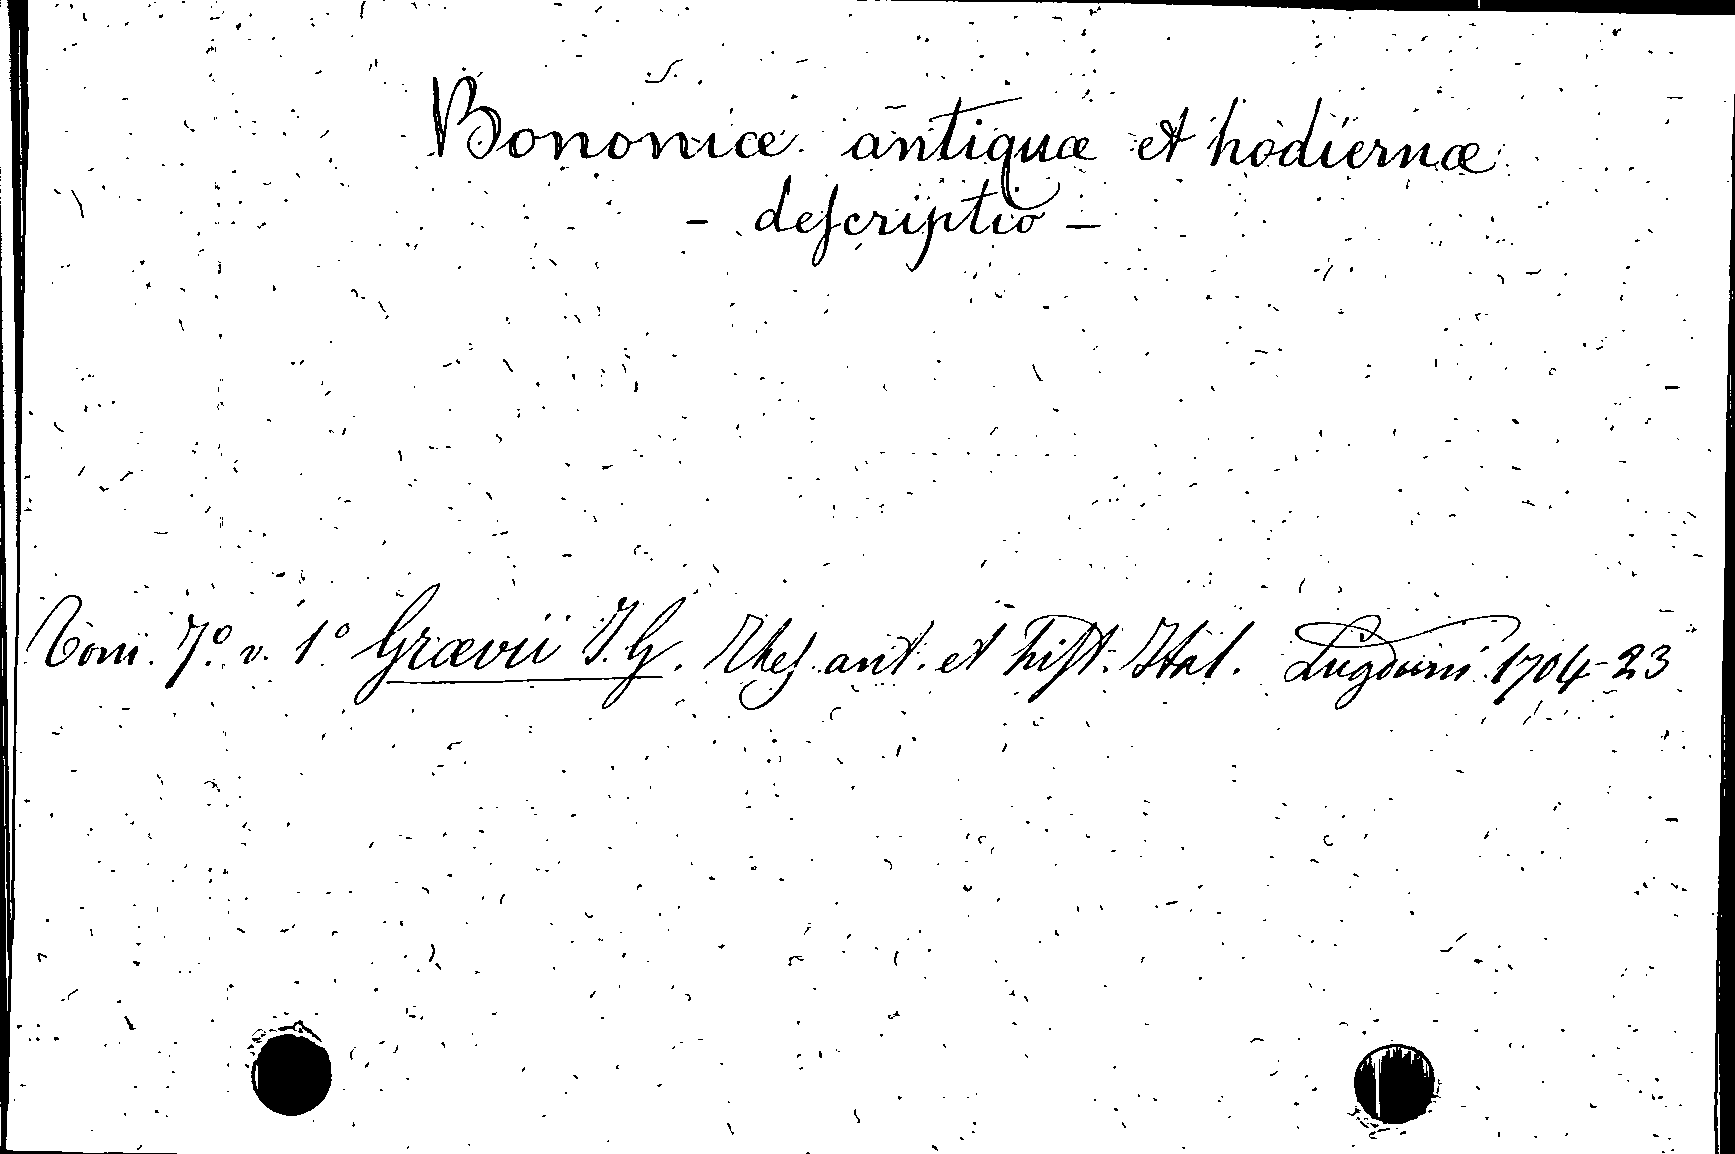 Bononiæ antiquæ et hodiernæ
- descriptio -
Tom. 7º. v. 1º Grævii J. G. Thes. ant. et hist. Ital. Lugduni 1704-23